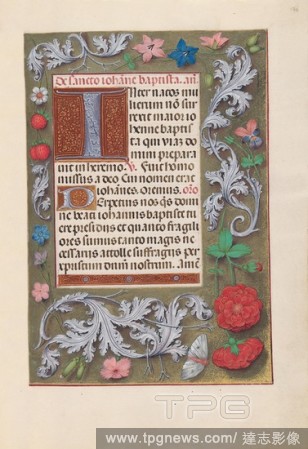 De sancto iohane baptista. añ
Inter natos mu
lierum nõ sur
rexit maior io
henne baptis
ta qui viaz do
mini prepara
uit in heremo. ℣. Fuit homo
missus a deo Cui nomen erat
iohannes. Oremus. oro
Perpetuis nos qs domi
ne beati iohannis baptiste tu
ere presidiis et quanto fragili
ores sumus tanto magis ne
cessariis attolle suffragiis per
xpristum dnum nostrum. amē
TPG
www.tpgnews.com/ 達志影像